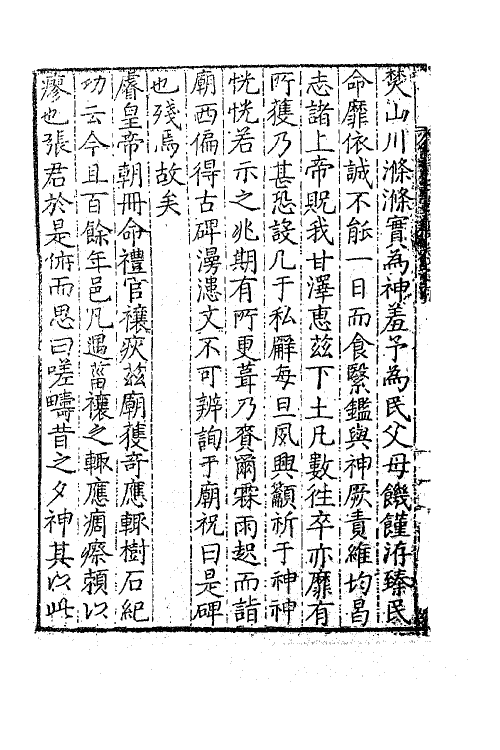 焚山川滌滌實為神羞予為民父母饑饉洊臻民
命靡依誠不能一日而食繄鑑與神厥責維均曷
志諸上帝貺我甘澤惠玆下土凡數徃卒亦靡有
所獲乃甚恐設几于私廨每旦夙興籲祈于神神
恍恍若示之兆期有所更葺乃賚爾霖雨起而詣
廟西偏得古碑漫漶文不可辨詢于廟祝曰是碑
也殘焉故矣
睿皇帝朝冊命禮官禳疢玆廟獲竒應輙樹石紀
功云今且百餘年邑凡遇菑禳之輙應痌瘝頼以
瘳也張君於是俯而思曰嗟疇昔之夕神其以此